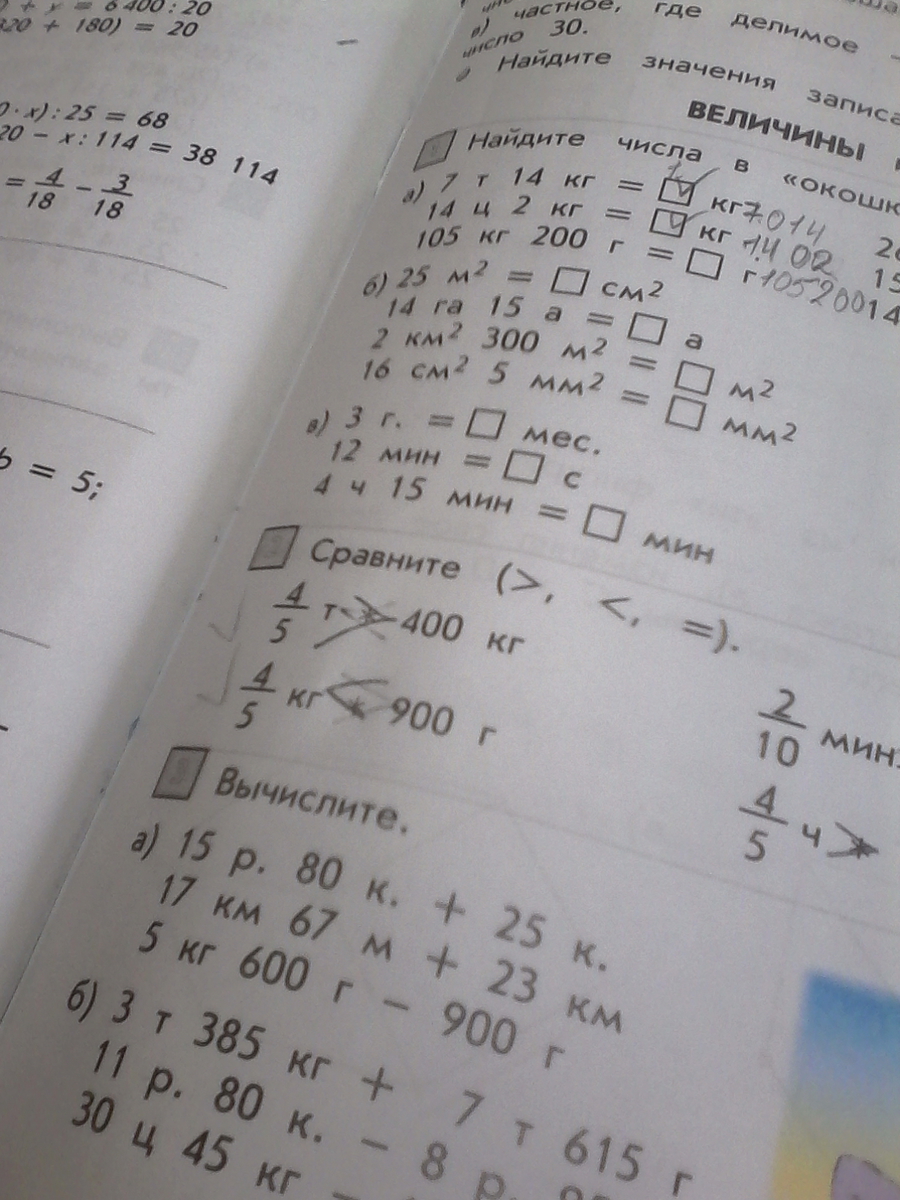 + x = 6 400 : 20
320 + 180) = 20
· x) : 25 = 68
20 − x : 114 = 38 114
= 4/18 − 3/18
b = 5;
частное, где делимое
число 30.
Найдите значения
ВЕЛИЧИНЫ
Найдите числа в «окошк
а) 7 т 14 кг = □ кг 7014
14 ц 2 кг = □ кг 1402
105 кг 200 г = □ г 105200
б) 25 м² = □ см²
14 га 15 а = □ а
2 км² 300 м² = □ м²
16 см² 5 мм² = □ мм²
в) 3 г. = □ мес.
12 мин = □ с
4 ч 15 мин = □ мин
Сравните (>, <, =).
4/5 т > 400 кг
4/5 кг < 900 г
2/10 мин
4/5 ч >
Вычислите.
а) 15 р. 80 к. + 25 к.
17 км 67 м + 23 км
5 кг 600 г − 900 г
б) 3 т 385 кг + 7 т 615 г
11 р. 80 к. − 8 р.
30 ц 45 кг